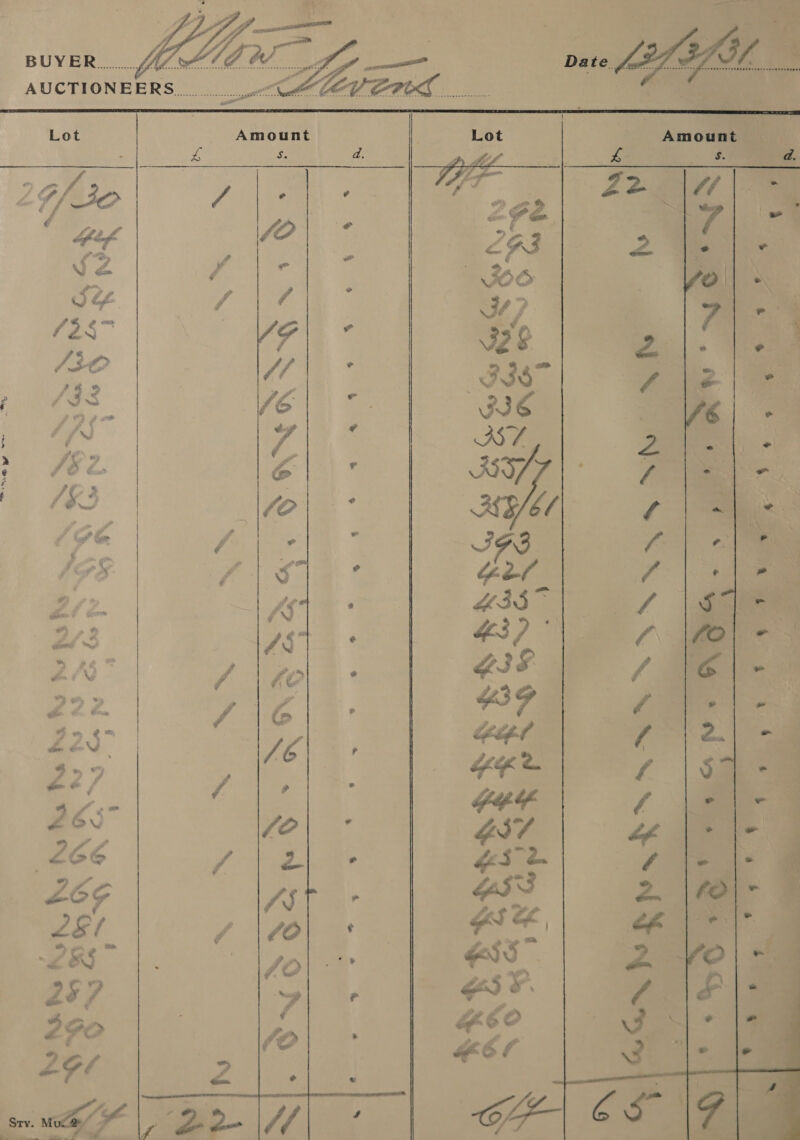 BUYER
Date 12/3/31
AUCTIONEERS Stevens
Lot Amount Lot Amount
£ s. d. £ s. d.
29/30 1 - -
44 10 -
52 1 - -
54 1 1 -
125 19 -
130 11 -
132 16 -
175 7 -
182 6 -
183 10 -
196 1 - -
198 1 5 -
212 15 -
213 15 -
215 1 10 -
222 1 6 -
225 16 -
227 1 - -
265 10 -
266 1 2 -
269 15 -
281 1 10 -
285 10 -
287 7 -
290 10 -
291 2 - -
22 11 -
B/F 22 11 -
292 7 -
293 2 - -
300 10 -
317 7 -
328 2 - -
335 1 2 -
336 16 -
357 2 - -
1 - -
1 - -
393 1 - -
421 1 - -
435 1 5 -
437 1 10 -
438 1 6 -
439 1 - -
441 1 2 -
442 1 5 -
444 1 - -
451 4 - -
452 1 - -
453 2 10 -
454 4 - -
455 2 10 -
458 1 8 -
460 3 - -
461 3 - -
C/F 65 9 -